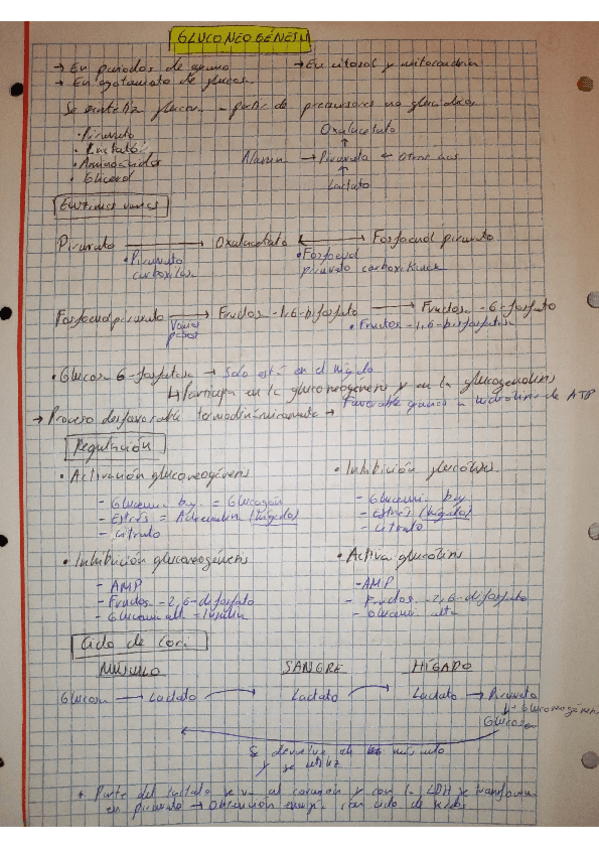 GLUCONEOGÉNESIS
→ En periodos de ayuno → En citosol y mitocondria
→ En agotamiento de glucosa.
Se sintetiza glucosa a partir de precursores no glucídicos
• Piruvato
• Lactato
• Aminoácidos
• Glicerol
Oxalacetato
↑
Alanina → Piruvato ← Otros aas
↑
Lactato
Enzimas
Piruvato → Oxalacetato ↔ Fosfoenol piruvato
• Piruvato carboxilasa
• Fosfoenol piruvato carboxikinasa
Fosfoenol piruvato → Fructosa-1,6-bifosfato → Fructosa-6-fosfato
Varios pasos
• Fructosa-1,6-bisfosfatasa
• Glucosa 6-fosfatasa → Solo está en el hígado
↳ Participa en la gluconeogénesis y en la glucogenolisis
→ Proceso desfavorable termodinámicamente → Favorable gracias a hidrólisis de ATP
Regulación
• Activación gluconeogénesis
- Glucemia baja = Glucagón
- Estrés = Adrenalina (hígado)
- Citrato
• Inhibición glucólisis
- Glucemia baja
- Estrés (hígado)
- Citrato
• Inhibición gluconeogénesis
- AMP
- Fructosa-2,6-difosfato
- Glucemia alta = Insulina
• Activa glucolisis
- AMP
- Fructosa-2,6-difosfato
- Glucemia alta
Ciclo de Cori
MÚSCULO SANGRE HÍGADO
Glucosa → Lactato → Lactato → Lactato → Piruvato
↓ Gluconeogénesis
Glucosa
Se devuelve al músculo
y se utiliza
* Parte del lactato se va al corazón y con la LDH se transforma
en piruvato → Obtención energía con ciclo de Krebs